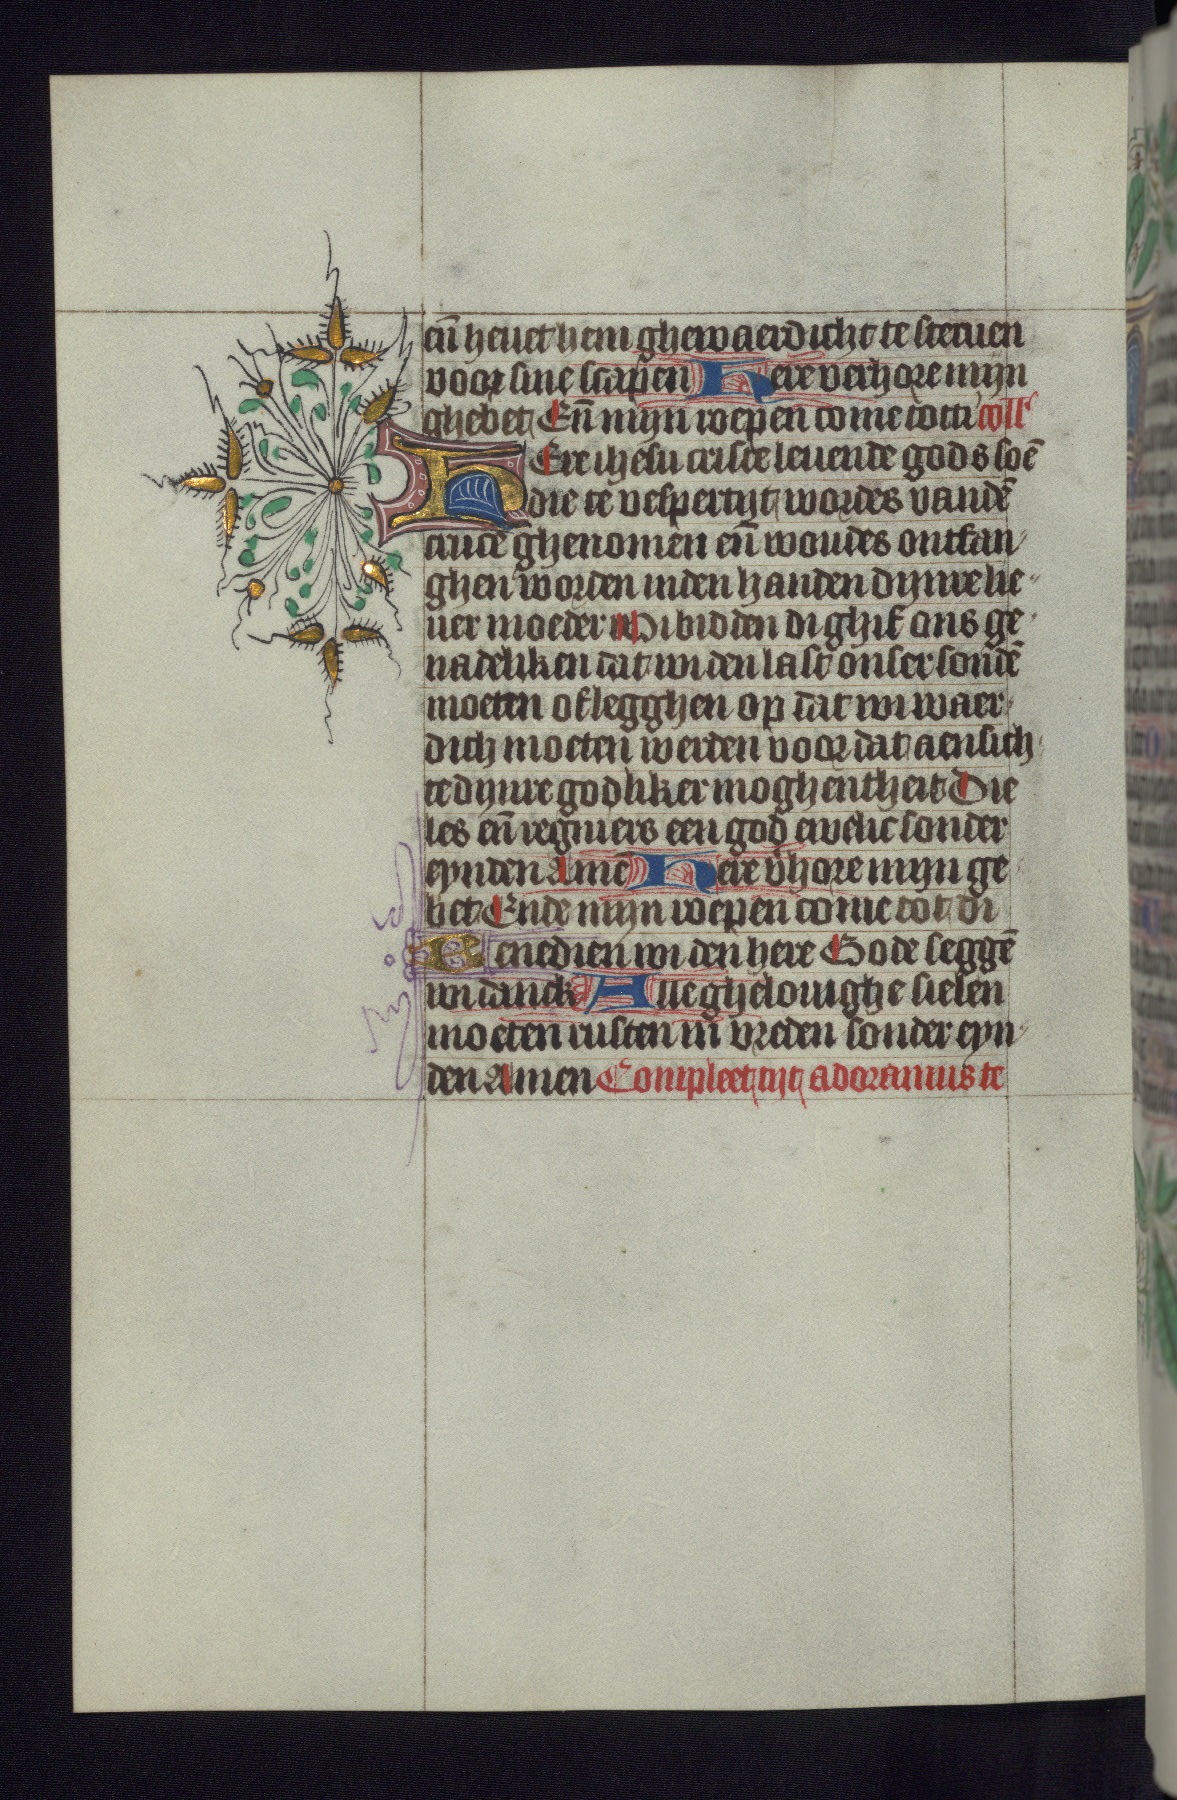 eñ heuet hem ghewaerdicht te steruen
voor sine scapen Here verhore mijn
ghebet Eñ mijn roepen come totti coll'
HEre ihesu criste leuende gods soē
die te vespertijt wordes vandē
cruce ghenomen eñ woudes ontfan
ghen worden inden handen dijnre lie
uer moeder Wi bidden di ghif ons ge
nadeliken dat wi den last onser sondē
moeten oflegghen op dat wi waer
dich moeten werden voor dat aensich
te dijnre godliker moghentheit Die
les eñ regniers een god ewelic sonder
eynden Amē Here v̄hore mijn ge
bet Ende mijn roepen come tot di
Benedien wi den here Gode seggē
wi danck Alle ghelouighe sielen
moeten rusten in vreden sonder eyn
den Amen Compleetijt adoramus te